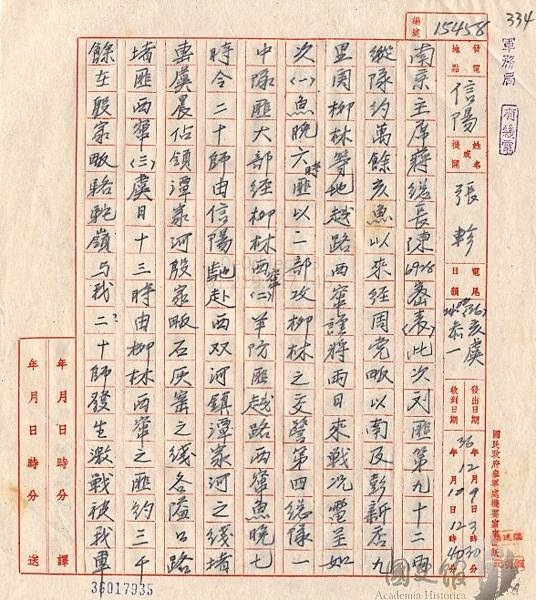 334
軍務局
編號 15458
發電地點 信陽
姓名或機關 張軫
電尾日韻 (36)亥虞
恭一
發出日期 36年12月9日3時30分
收到日期 年12月10日12時40分
南京主席蔣總長陳6928密表(此次列匪第九十二兩
縱隊約萬餘亥魚以來經周党畈以南及彭新店九
里関柳林等地越路西竄謹將兩日來戰況電呈如
次(一)魚晚六時匪以一部攻柳林之交警第四總隊一
中隊匪大部經柳林西竄(二)羊防匪越路西竄魚晚七
時令二十師由信陽馳赴西双河鎮潭家河之綫堵
擊虞晨佔領潭家河殷家畈石灰窰之綫各隘口路
堵匪西竄(三)虞日十三時由柳林西竄之匪約三千
餘在殷家畈駱駝嶺与我二十師發生激戰被我軍
年月日時分譯
年月日時分送
36017935
國史館
Academia Historica